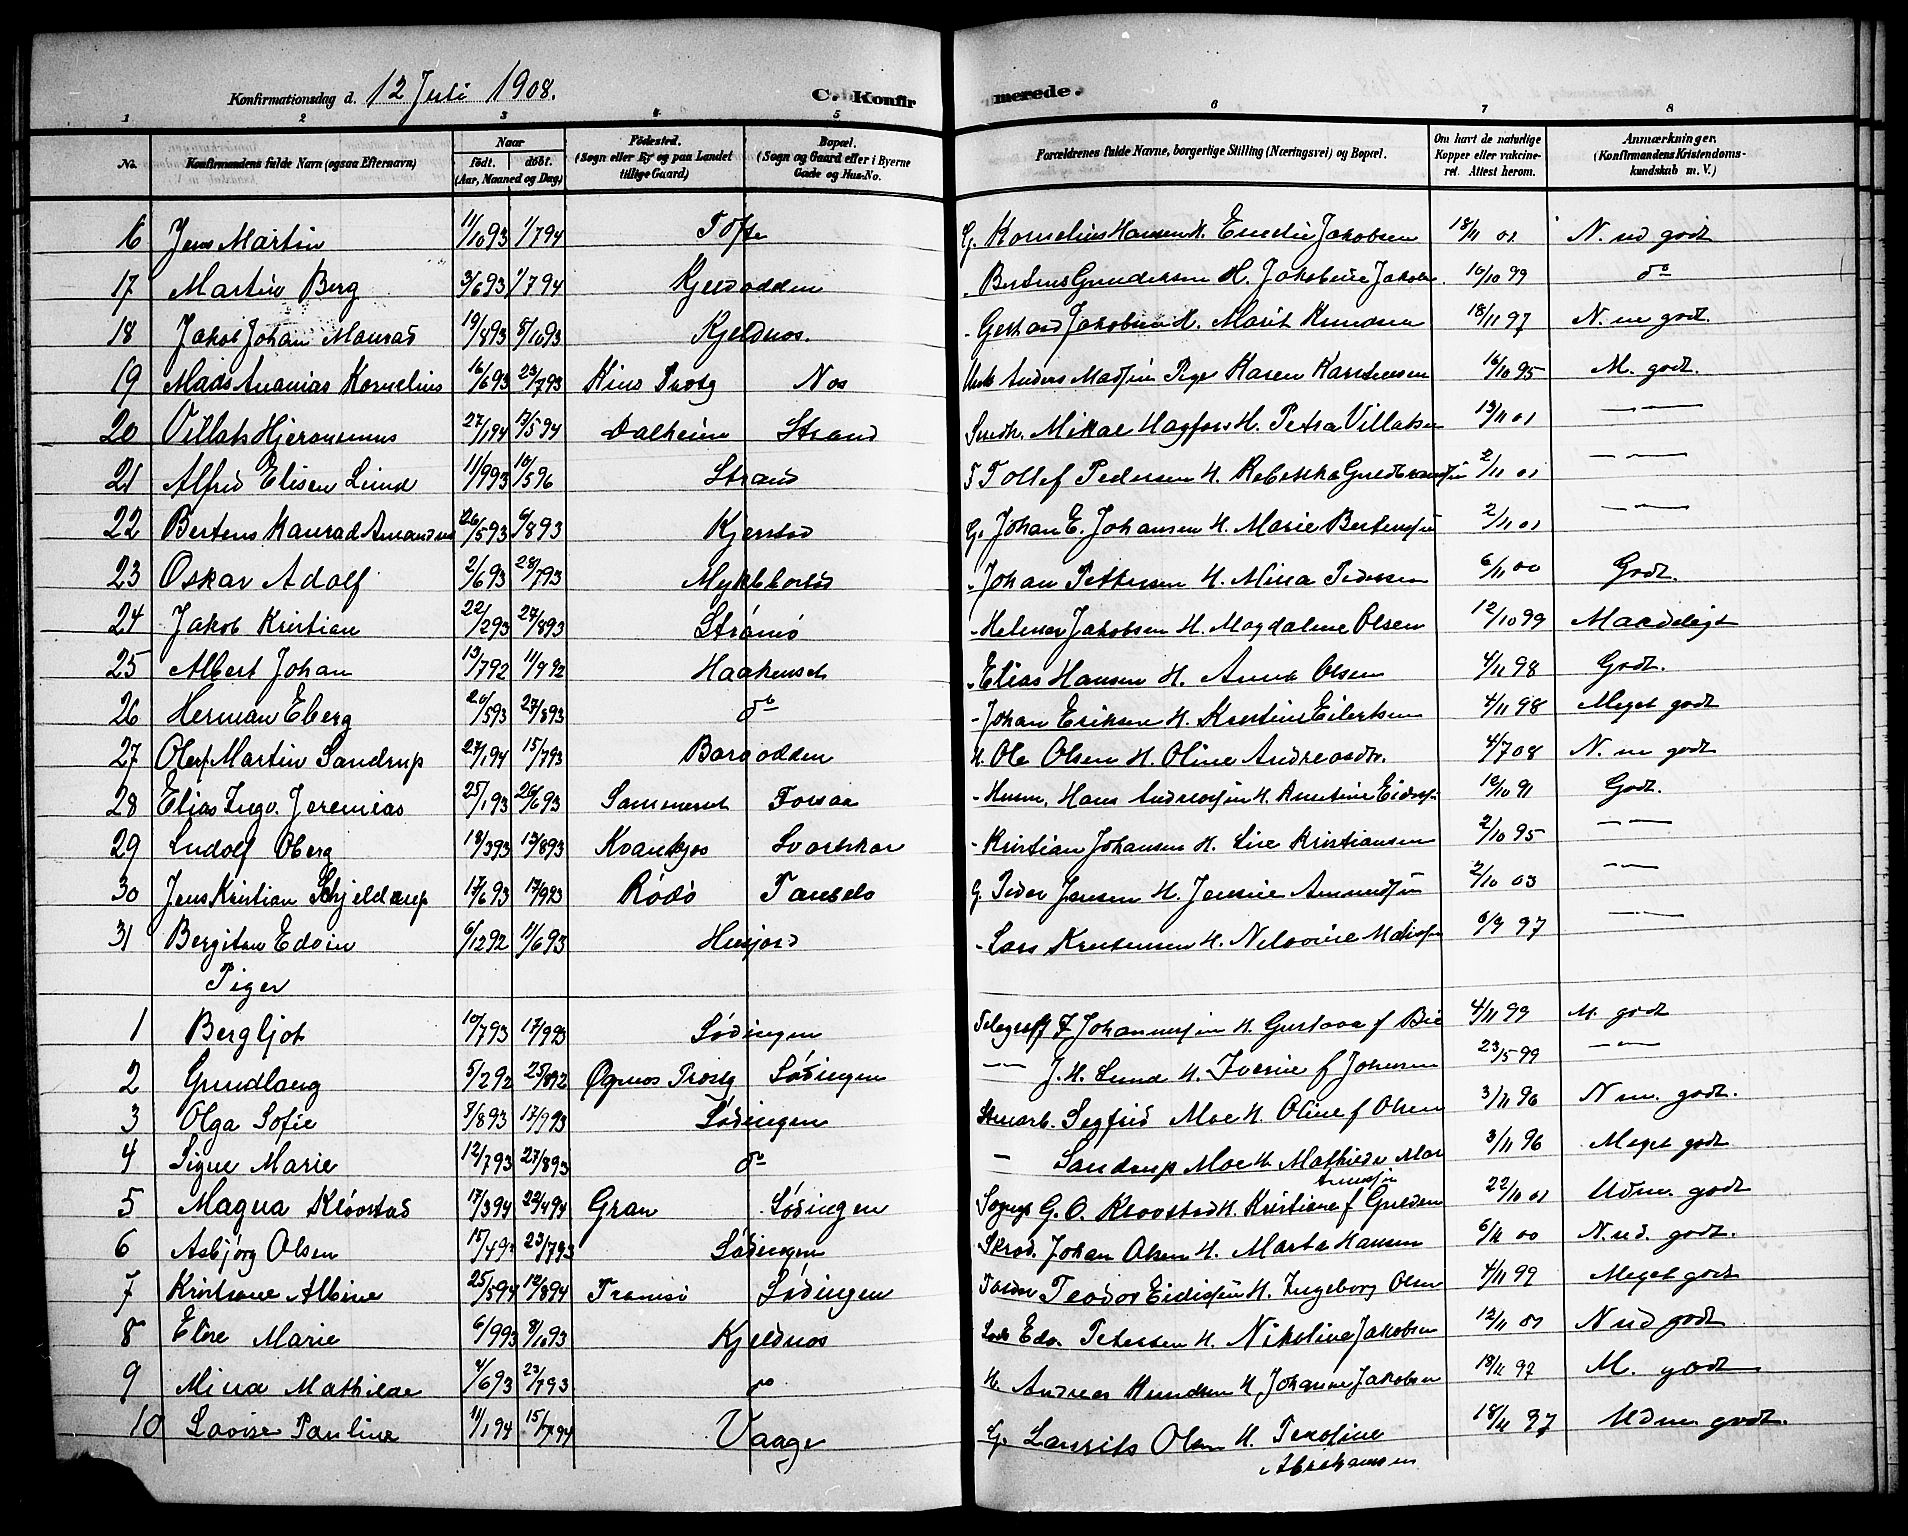 Konfirmationsdag d. 12 Juli 1908. C. Konfirmerede.
1 2 3 4 5 6 7 8
No. Konfirmandens fulde Navn (ogsaa Efternavn) Naar født. døbt. (Aar, Maaned og Dag) Fødested. (Sogn eller By og paa Landet tillige Gaard) Bopæl. (Sogn og Gaard eller i Byerne Gade og Hus-No. Forældrenes fulde Navne, borgerlige Stilling (Næringsvei) og Bopæl. Om havt de naturlige Kopper eller vaccineret. Attest herom. Anmærkninger. (Konfirmandens Kristendomskundskab m. V.)
16 Jens Martin 11/10 93 1/7 94 Tofte G. Kornelius Hansen H. Emelie Jakobsen 18/11 01 N. ud godt
17 Martin Berg 3/6 93 1/7 94 Kjelvodden - Berteus Gundersen H. Jakobine Jakobs. 10/10 99 do
18 Jakob Johan Monrad 19/8 93 8/10 93 Kjeldnos. - Gerhard Jakobsen H. Marit Knudsen 18/11 97 N. m godt.
19 Mads Ananias Kornelius 16/6 93 23/7 93 Nos Anders Madssen Karen 16/10 95 M. godt.
20 Villats Hjeronimus 27/1 94 13/5 94 Dalheim Strand Mikal Hagfors H. Petra Villatsen 13/11 01 — —
21 Alfred Elisen Lund 11/9 93 10/5 96 Strand T Tollef Pedersen H. Rebekka Guldbrandsen 2/11 01 — —
22 Bertens Konrad Amandus 26/5 93 6/8 93 Kjerstad G. Johan E. Johansen H. Marie Bertenssen 2/11 01 — —
23 Oskar Adolf 2/6 93 28/7 93 Myklebostad - Johan Pettersen H. Mina Pedersen 6/11 00 Godt.
24 Jakob Kristian 22/2 93 27/8 93 Strømø - Helmer Jakobsen H. Magdalene Olsen 12/10 99 Maadeligt
25 Albert Johan 13/7 92 11/9 92 Haakenset - Elias Hansen H. Anna Olsen 4/11 98 Godt.
26 Herman Eberg 20/5 93 27/8 93 do - Johan Eriksen H. Kristine Eilertsen 4/11 98 Meget godt
27 Oluf Martin Sandrup 27/1 94 15/7 93 Borgodden H. Ole Olsen H. Oline Andreasdtr. 4/7 08 N. m godt
28 Elias Ingv. Jeremias 25/1 93 26/6 93 Sommerset Forsaa - Husm. Hans Andreassen H. Anntine 12/10 91 Godt.
29 Ludolf Oberg 18/3 93 13/8 93 Kvankjos Svartskar - Kristian Johansen H. Line Kristiansen 2/10 95 — —
30 Jens Kristian Schjelderup 17/6 93 17/9 93 Rødø Tansøs G Peder Jensen H. Jensine Amundsen 2/10 03 — —
31 Bergiton Edvin 6/12 92 11/6 93 Husjord - Lars Kristensen H. Nelovine 6/9 97 — —
Piger
1 Bergljot 10/7 93 17/9 93 Lødingen Telegraf J Johannessen H. Gustava f Bie 4/11 99 M. godt
2 Gundlaug 5/2 92 25/8 92 Øgnos Prstg Lødingen — J. H. Lund H. Iversine f Johnsen 23/5 99 — —
3 Olga Sofie 3/8 93 17/9 93 Lødingen Stenarb. Segfrid Moe H. Oline f Olsen 3/11 96 N m. godt.
4 Signe Marie 12/7 93 27/8 93 do — Sandrup Moe H. Mathilde Moe 3/11 96 Meget godt
5 Magna Kløvstad 17/3 94 22/4 94 Gran Lødingen Sognep G. O. Kløvstad H. Kristiane f Gulden 22/11 01 Udm. godt
6 Asbjørg Olsen 15/4 93 23/7 93 Lødingen Skrad. Johan Olsen H. Marta Hansen 6/11 00 N. ud. godt.
7 Kristiane Albine 25/5 94 12/8 94 Tromsø Lødingen Teodor Eidissen H. Ingeborg Olsen 4/11 99 Meget godt
8 Eline Marie 6/9 93 8/10 93 Kjeldnos Lods Edv. Petersen H. Nikoline Jakobsen 12/11 01 N ud godt
9 Mina Mathilde 4/6 93 23/7 93 do H. Andreas Knudsen H. Johanne Jakobsen 18/11 97 M. godt
10 Lovise Pauline 11/1 94 15/4 94 Vaage G. Laurits Olsen H. Abrahamsen 18/11 97 Udm godt.